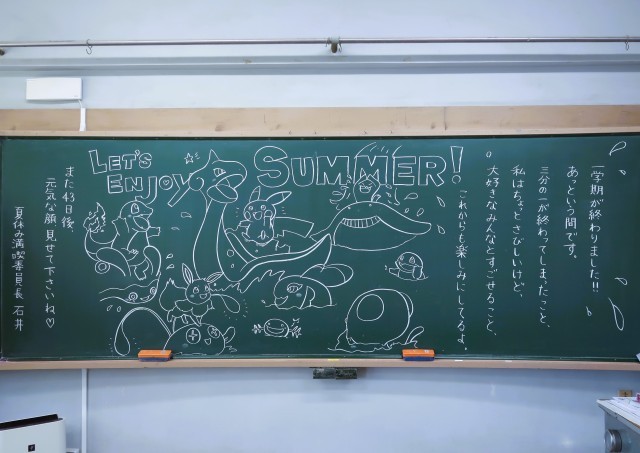 LET'S
ENJOY
SUMMER!
一学期が終わりました!!
あっという間です。
三分の一が終わってしまったこと、
私はちょっとさびしいけど、
大好きなみんなとすごせること、
これからも楽しみにしてるよ。
また43日後、
元気な顔見せて下さいね♡
夏休み満喫委員長 石井